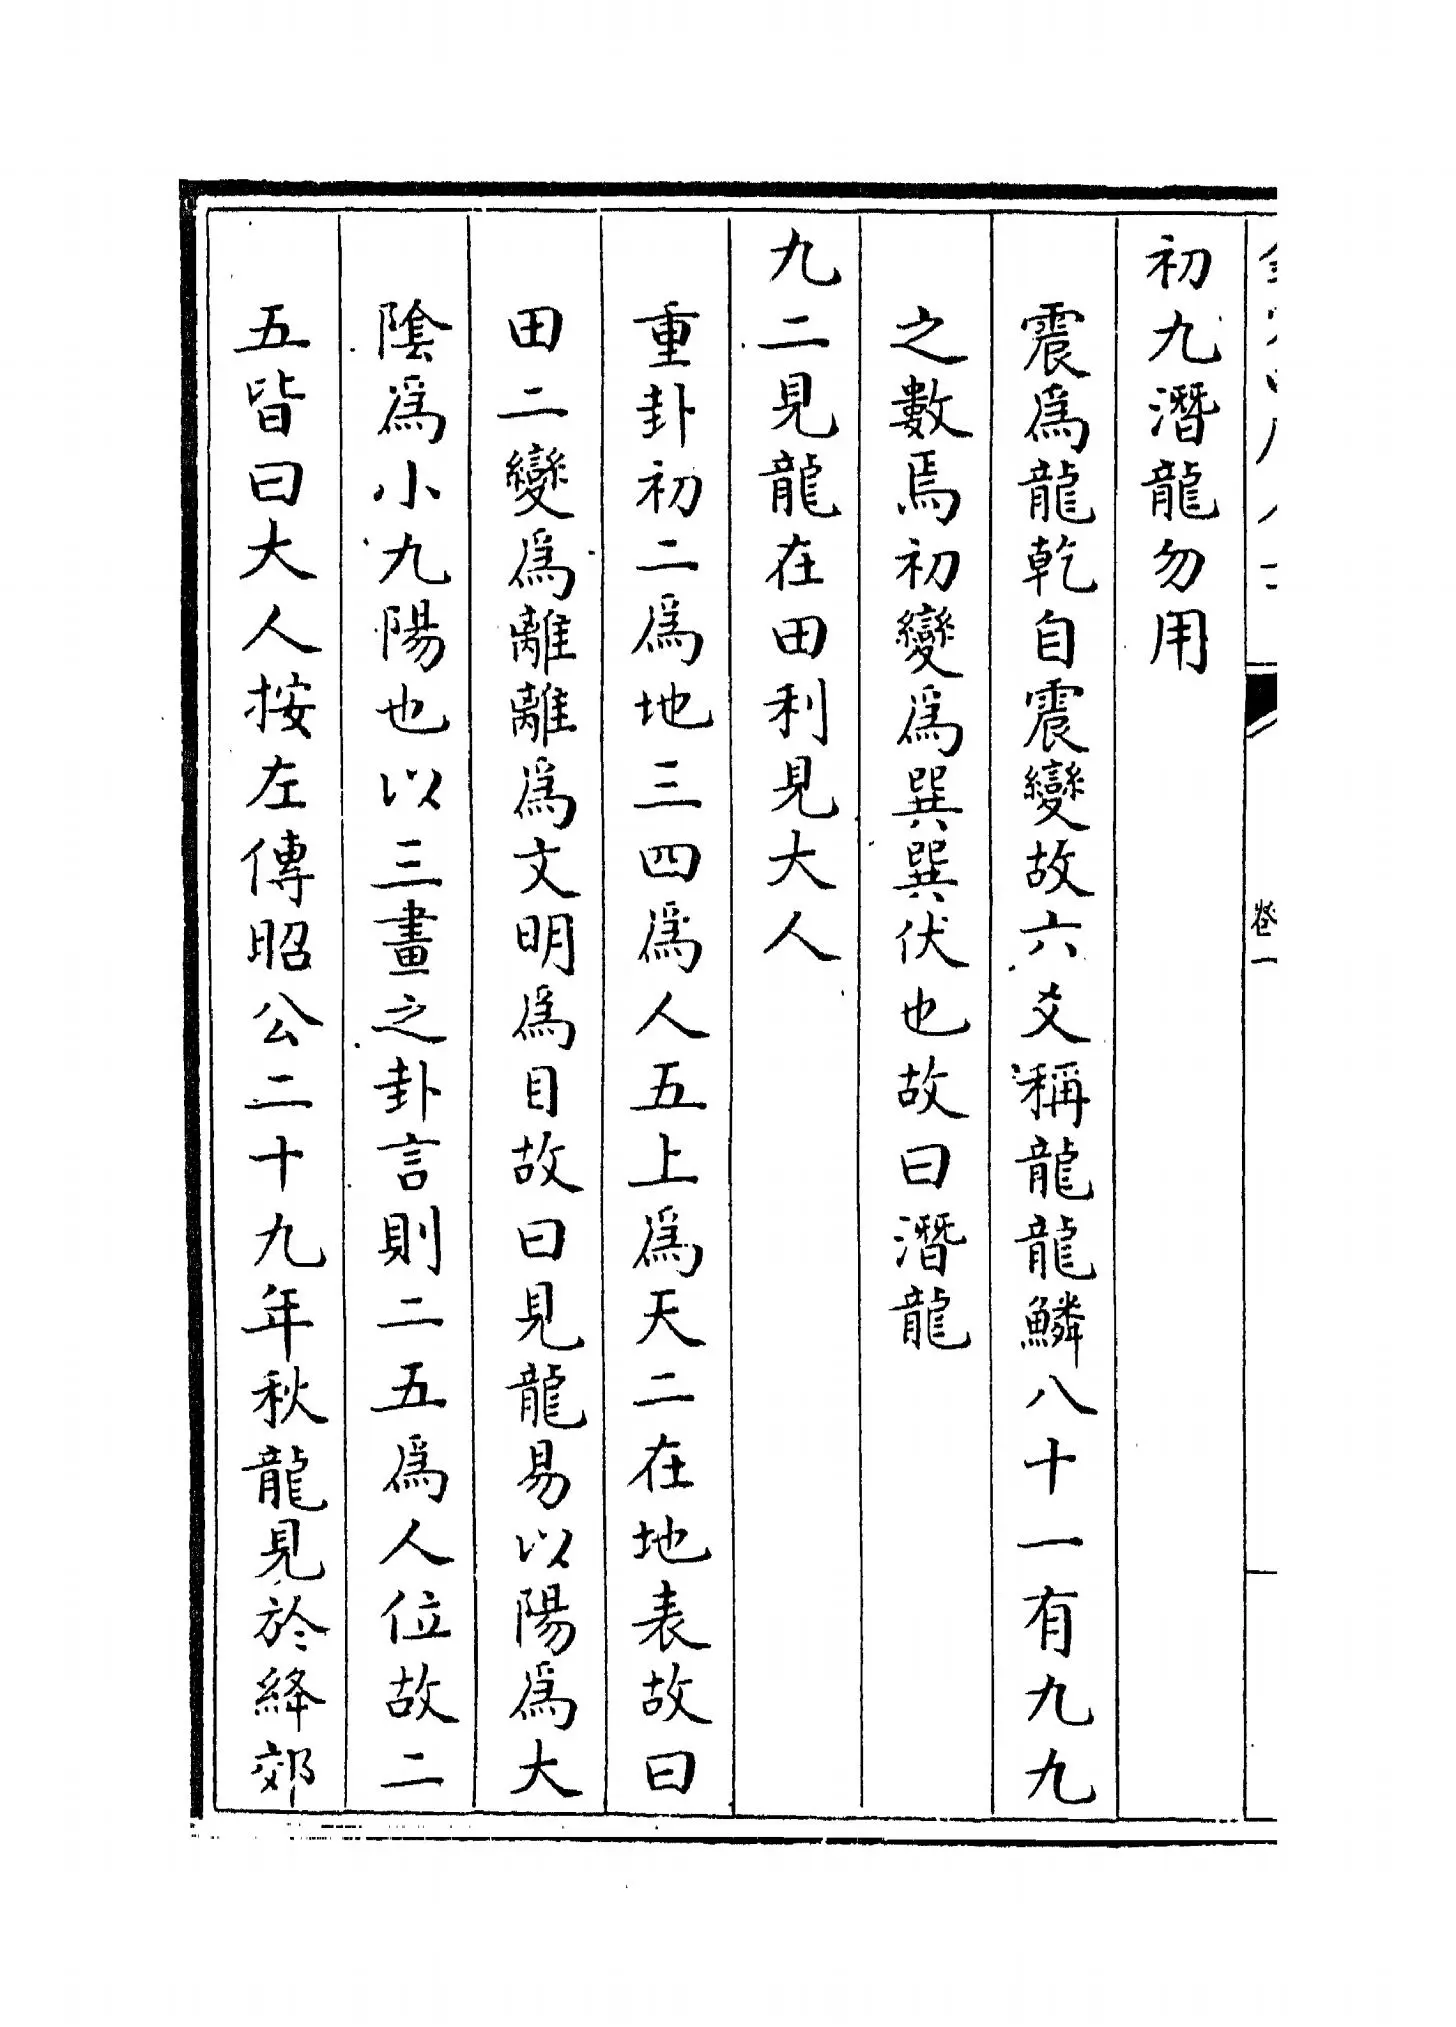 初九潛龍勿用
震爲龍乾自震變故六爻稱龍龍鱗八十一有九九
之數焉初變爲巽巽伏也故曰潛龍
九二見龍在田利見大人
重卦初二爲地三四爲人五上爲天二在地表故曰
田二變爲離離爲文明爲目故曰見龍易以陽爲大
陰爲小九陽也以三畫之卦言則二五爲人位故二
五皆曰大人按左傳昭公二十九年秋龍見於絳郊
卷一